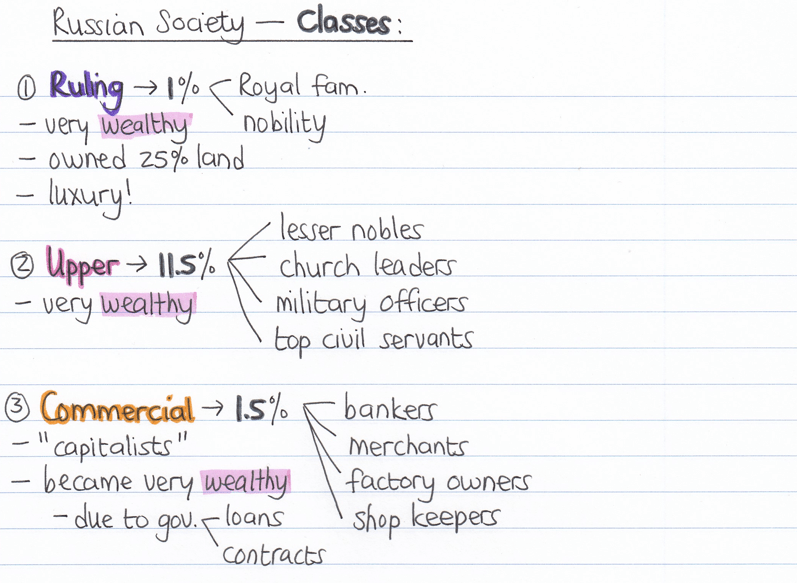 Russian Society — Classes:
① Ruling → 1% Royal fam.
nobility
– very wealthy
– owned 25% land
– luxury!
lesser nobles
② Upper → 11.5% church leaders
– very wealthy military officers
top civil servants
③ Commercial → 1.5% bankers
– "capitalists" merchants
– became very wealthy factory owners
– due to gov. loans shop keepers
contracts